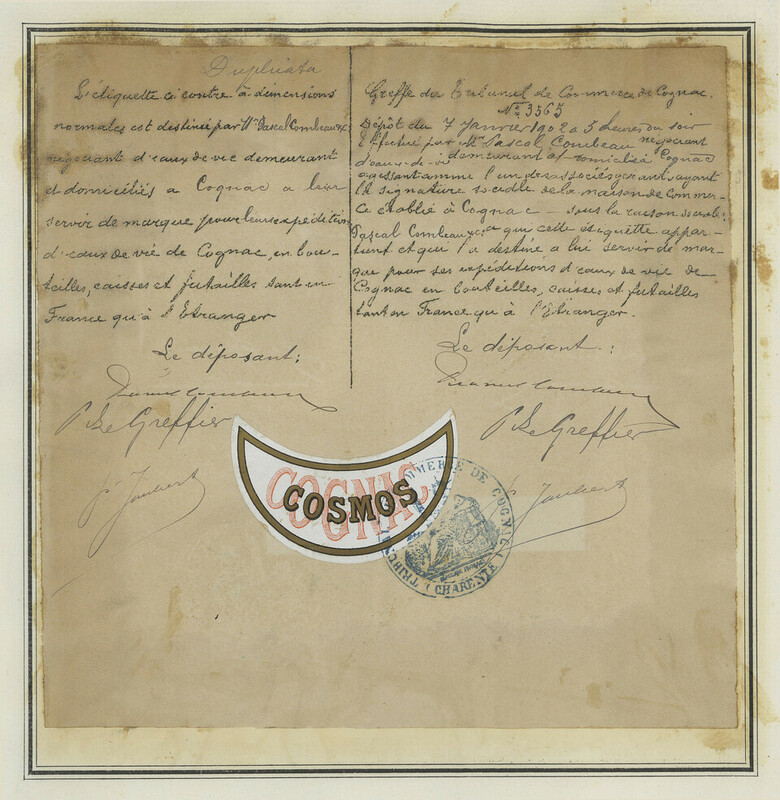 Duplicata
L'étiquette ci contre à dimensions
normales est destinée par Mrs Pascal Combeau &c
négociant d'eaux de vie demeurant
et domiciliés a Cognac a leur
servir de marque pour leurs expéditions
d'eaux de vie de Cognac, en bou-
teilles, caisses et futailles tant en
France qu'à l'Etranger
Le déposant:
P Le Greffier
P. Jaubert
Greffe du Tribunal de Commerce de Cognac.
N° 3565
Dépôt du 7 Janvier 1902 a 5 heures du soir
Effectué par Mr Pascal Combeau négociant
d'eaux-de-vie demeurant et domicilié Cognac
agissant comme l'un des associés gérant ayant
la signature sociale de la maison de Commer-
ce établie à Cognac - sous la raison sociale:
Pascal Combeau &c a qui cette étiquette appar-
tient et qui l'a destine a lui servir de mar-
que pour ses expéditions d'eaux de vie de
Cognac en bouteilles, caisses et futailles
tant en France qu'à l'Etranger.
Le déposant:
P Le Greffier
P. Jaubert
COGNAC
COSMOS
COMMERCE DE COGNAC
(CHARENTE)